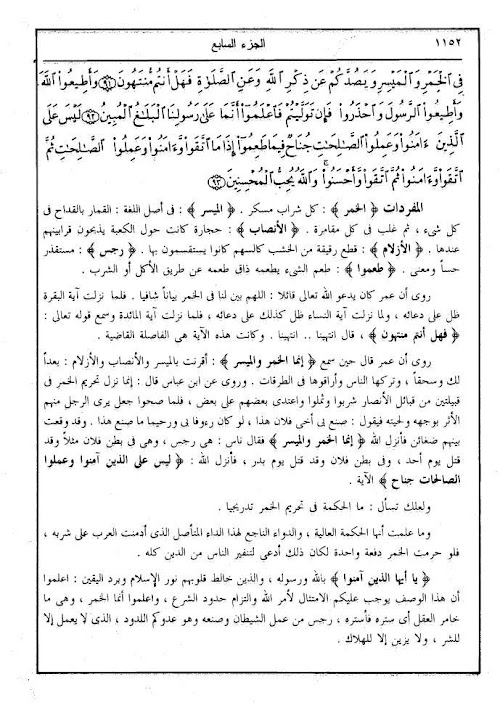 ١١٥٢ الجزء السابع
فِي الْخَمْرِ وَالْمَيْسِرِ وَيَصُدَّكُمْ عَن ذِكْرِ اللَّهِ وَعَنِ الصَّلَوٰةِ فَهَلْ أَنتُم مُّنتَهُونَ ﴿٩١﴾ وَأَطِيعُوا۟ اللَّهَ
وَأَطِيعُوا۟ الرَّسُولَ وَاحْذَرُوا۟ فَإِن تَوَلَّيْتُمْ فَاعْلَمُوا۟ أَنَّمَا عَلَىٰ رَسُولِنَا الْبَلَٰغُ الْمُبِينُ ﴿٩٢﴾ لَيْسَ عَلَى
الَّذِينَ ءَامَنُوا۟ وَعَمِلُوا۟ الصَّٰلِحَٰتِ جُنَاحٌ فِيمَا طَعِمُوٓا۟ إِذَا مَا اتَّقَوا۟ وَّءَامَنُوا۟ وَعَمِلُوا۟ الصَّٰلِحَٰتِ ثُمَّ
اتَّقَوا۟ وَّءَامَنُوا۟ ثُمَّ اتَّقَوا۟ وَّأَحْسَنُوا۟ ۗ وَاللَّهُ يُحِبُّ الْمُحْسِنِينَ ﴿٩٣﴾
المفردات ﴿ الخمر ﴾ : كل شراب مسكر . ﴿ الميسر ﴾ : فى أصل اللغة : القمار بالقداح فى
كل شىء ، ثم غلب فى كل مقامرة . ﴿ الأنصاب ﴾ : حجارة كانت حول الكعبة يذبحون قرابينهم
عندها . ﴿ الأزلام ﴾ : قطع رقيقة من الخشب كالسهم كانوا يستقسمون بها . ﴿ رجس ﴾ : مستقذر
حساً ومعنى . ﴿ طعموا ﴾ : طعم الشىء يطعمه ذاق طعمه عن طريق الأكل أو الشرب .
روى أن عمر كان يدعو الله تعالى قائلا : اللهم بين لنا فى الخمر بياناً شافيا . فلما نزلت آية البقرة
ظل على دعائه ، ولما نزلت آية النساء ظل كذلك على دعائه ، فلما نزلت آية المائدة وسمع قوله تعالى :
﴿ فهل أنتم منتهون ﴾ ، قال انتهينا .. انتهينا . وكانت هذه الآية هى الفاصلة القاضية .
روى أن عمر قال حين سمع ﴿ إنما الخمر والميسر ﴾ : أقرنت بالميسر والأنصاب والأزلام : بعداً
لك وسحقاً ، وتركها الناس وأراقوها فى الطرقات . وروى عن ابن عباس قال : إنما نزل تحريم الخمر فى
قبيلتين من قبائل الأنصار شربوا وثملوا واعتدى بعضهم على بعض ، فلما صحوا جعل يرى الرجل منهم
الأثر بوجهه ولحيته فيقول : صنع بى أخى فلان هذا ، لو كان رءوفا بى ورحيما ما صنع هذا . وقد وقعت
بينهم ضغائن فأنزل الله ﴿ إنما الخمر والميسر ﴾ فقال ناس : هى رجس ، وهى فى بطن فلان مثلاً وقد
قتل يوم أحد ، وفى بطن فلان وقد قتل يوم بدر ، فأنزل الله : ﴿ ليس على الذين آمنوا وعملوا
الصالحات جناح ﴾ الآية .
ولعلك تسأل : ما الحكمة فى تحريم الخمر تدريجيا .
وما علمت أنها الحكمة العالية ، والدواء الناجع لهذا الداء المتأصل الذى أدمنت العرب على شربه ،
فلو حرمت الخمر دفعة واحدة لكان ذلك أدعى لتنفير الناس من الدين كله .
﴿ يا أيها الذين آمنوا ﴾ بالله ورسوله ، والذين خالط قلوبهم نور الإسلام وبرد اليقين : اعلموا
أن هذا الوصف يوجب عليكم الامتثال لأمر الله والتزام حدود الشرع ، واعلموا أنما الخمر ، وهى ما
خامر العقل أى ستره فأستره ، رجس من عمل الشيطان وصنعه وهو عدوكم اللدود ، الذى لا يعمل إلا
للشر ، ولا يزين إلا للهلاك .